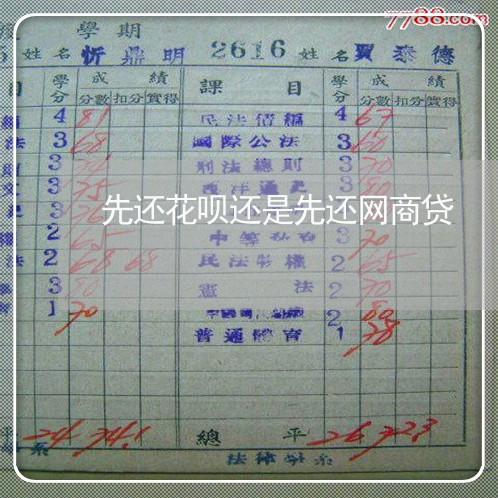 7788.com
學期
姓名 忻鼎明 2616 姓名 賈泰德
目 學分 成績 課目 學分 成績
分數 扣分 實得 分數 扣分 實得
4 81 民法債編 4 67
法 3 68 國際公法 3 60
3 刑法總則 3 70
文 3 75 西洋通史 3 80
先还花呗还是先还网商贷
2 65 3 70
法 2 68 68 民法物權 2 65
3 80 憲法 2 70
1 70 2 80
普通體育 1 78
平 24 74.1 總平 26 72.3
系 法律學系